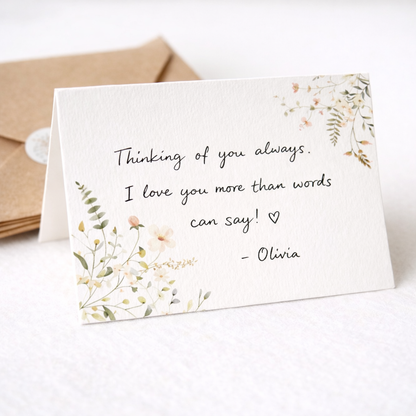 Thinking of you always.
I love you more than words
can say! ♡
- Olivia